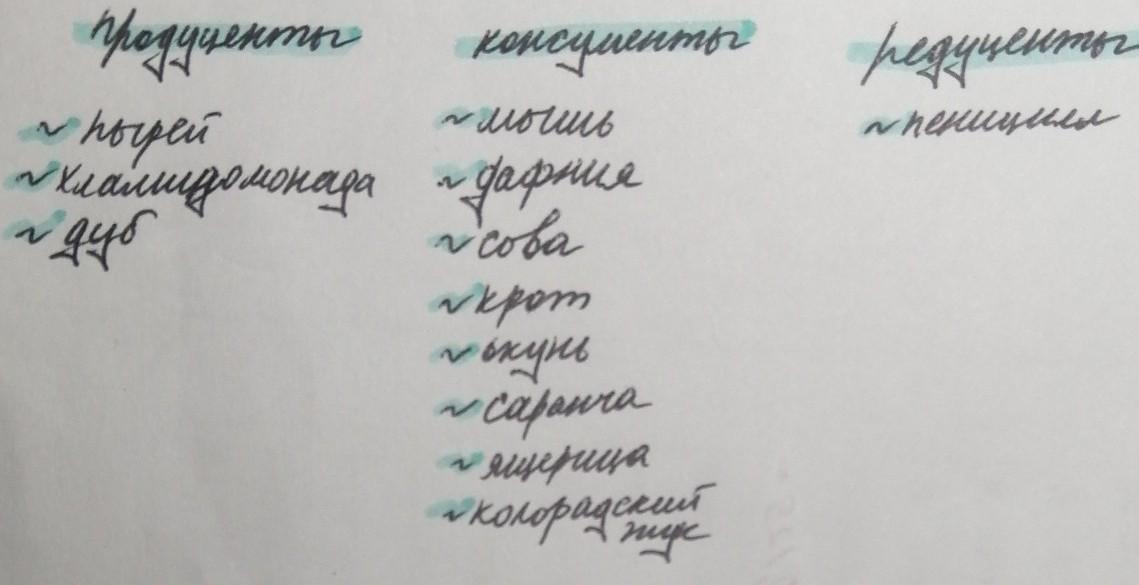 продуценты
~ пырей
~ хламидомонада
~ дуб
консументы
~ мышь
~ дафния
~ сова
~ крот
~ окунь
~ саранча
~ ящерица
~ колорадский
жук
редуценты
~ пеницилл